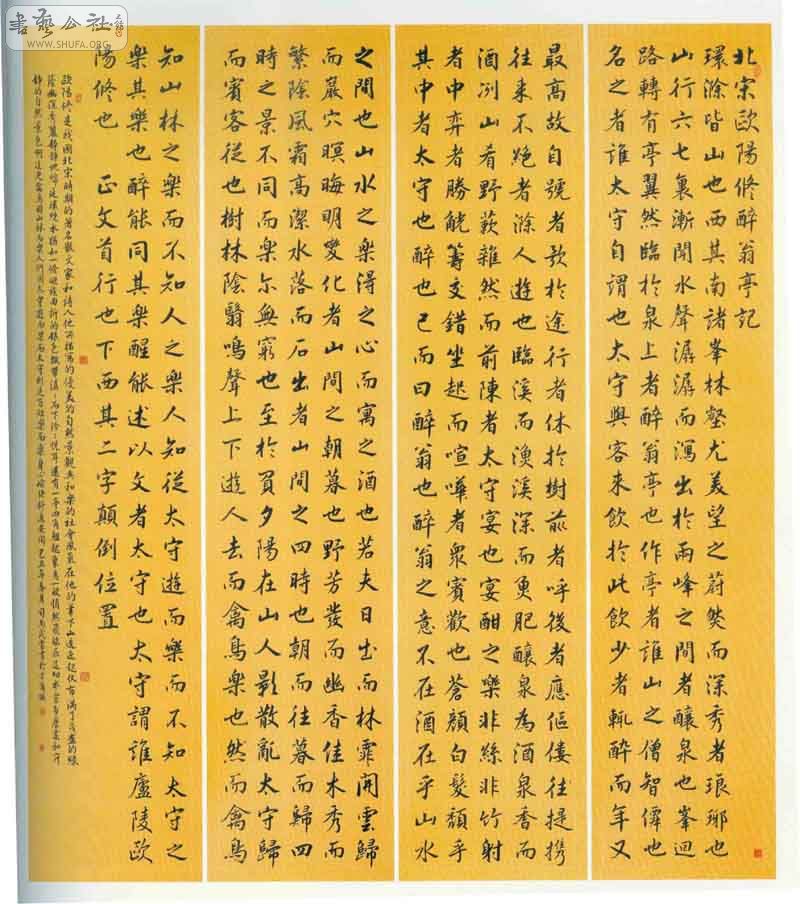 書藝公社
WWW.SHUFA.ORG
北宋歐陽修醉翁亭記
環滁皆山也西其南諸峯林壑尤美望之蔚然而深秀者琅琊也
山行六七裏漸聞水聲潺潺而瀉出於兩峰之間者釀泉也峯迴
路轉有亭翼然臨於泉上者醉翁亭也作亭者誰山之僧智僊也
名之者誰太守自謂也太守與客來飲於此飲少者輒醉而年又
最高故自號者歌於途行者休於樹前者呼後者應傴僂往提攜
往来不絕者滁人遊也臨溪而漁溪深而魚肥釀泉為酒泉香而
酒冽山肴野蔌雜然而前陳者太守宴也宴酣之樂非絲非竹射
者中弈者勝觥籌交錯坐起而喧嘩者眾賓歡也蒼顏白髮頹乎
其中者太守也醉也已而曰醉翁也醉翁之意不在酒在乎山水
之間也山水之樂得之心而寓之酒也若夫日出而林霏開雲歸
而巖穴暝晦明變化者山間之朝暮也野芳發而幽香佳木秀而
繁陰風霜高潔水落而石出者山間之四時也朝而往暮而歸四
時之景不同而樂尔無窮也至於負夕陽在山人影散亂太守歸
而賓客從也樹林陰翳鳴聲上下遊人去而禽鳥樂也然而禽鳥
知山林之樂而不知人之樂人知從太守遊而樂而不知太守之
樂其樂也醉能同其樂醒能述以文者太守也太守謂誰廬陵歐
陽修也 正文首行也下西其二字顛倒位置
歐陽修是我國北宋時期的著名散文家和詩人他所描寫的優美的自然景觀與和樂的社會風氣在他的筆下山遠近起伏布滿了茂盛的綠